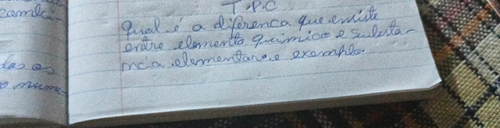 T.P.C
qual é a diferenca que existe
entre elemento quimico e substan-
cia elementar e exemplo.
das os